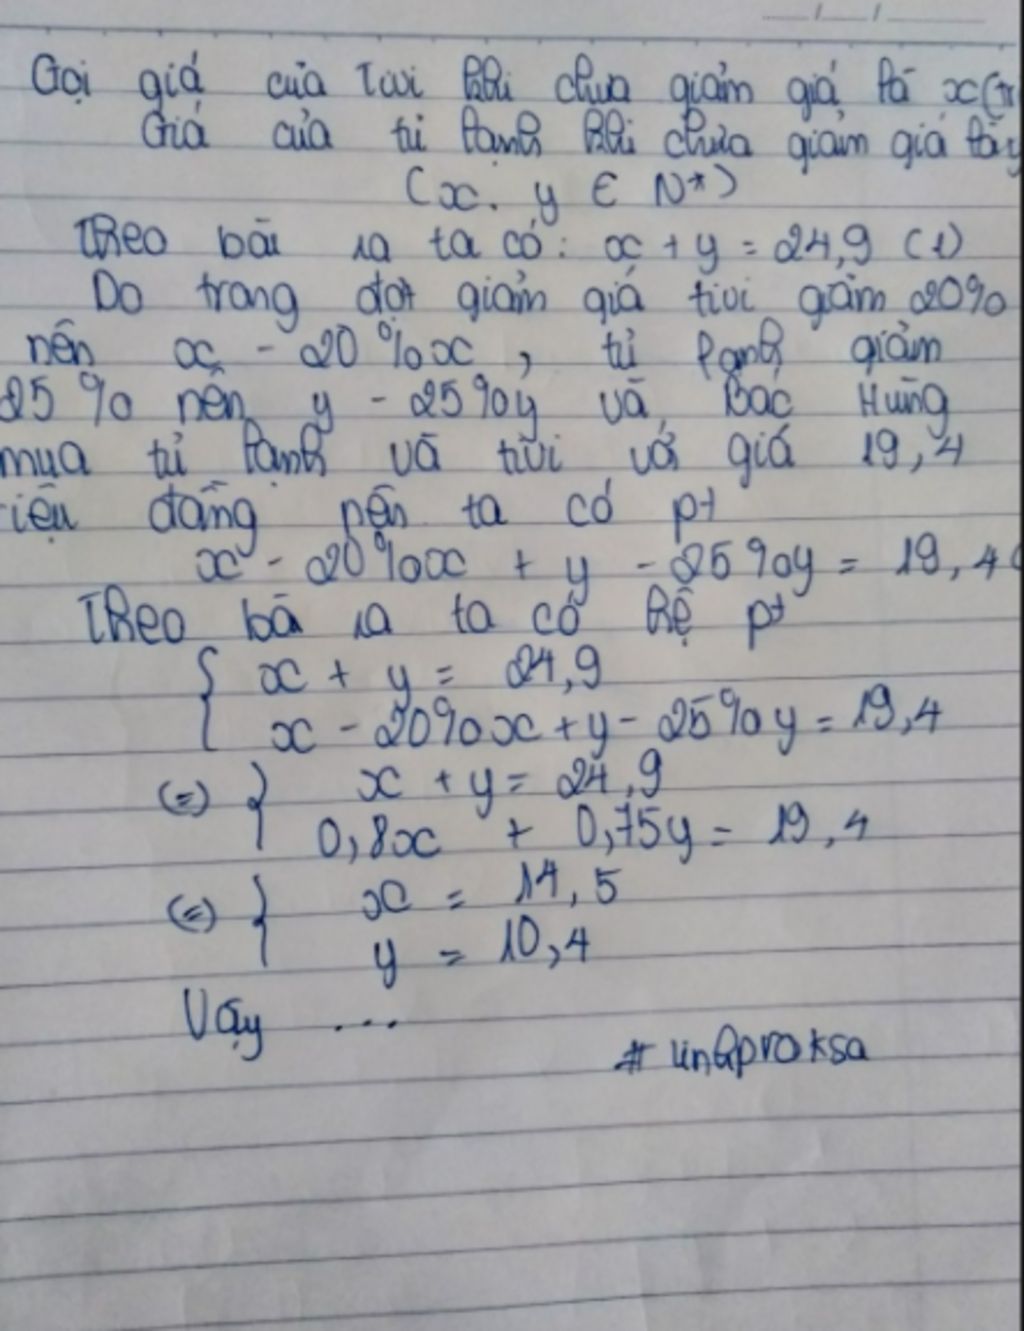 Gọi giá của Tivi khi chưa giảm giá là x(tr
Giá của tủ lạnh khi chưa giảm giá là y
(x. y ∈ N*)
Theo bài ra ta có: x + y = 24,9 (1)
Do trong đợt giảm giá tivi giảm 20%
nên x - 20%x, tủ lạnh giảm
25% nên y - 25%y và Bác Hùng
mua tủ lạnh và tivi với giá 19,4
iệu đồng nên ta có pt
x - 20%x + y - 25%y = 19,4
Theo bà ra ta có hệ pt
{ x + y = 24,9
x - 20%x + y - 25%y = 19,4
(=) } x + y = 24,9
0,8x + 0,75y = 19,4
(=) } x = 14,5
y = 10,4
Vậy ...
# linhproksa